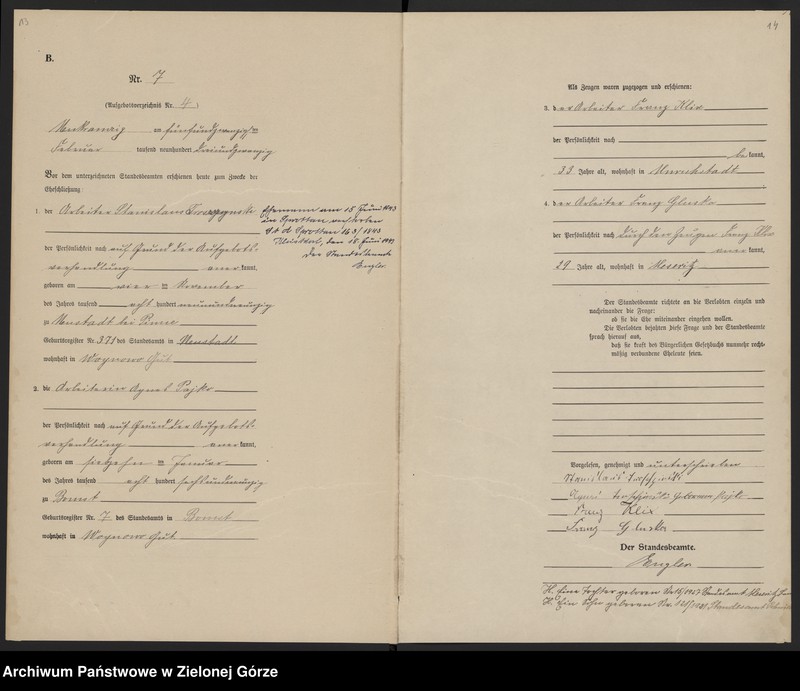 13
B.
Nr. 7
(Aufgebotsverzeichnis Nr. 4)
am fünfundzwanzigsten
Februar tausend neunhundert dreiundzwanzig
Vor dem unterzeichneten Standesbeamten erschienen heute zum Zwecke der
Eheschließung:
1. der Arbeiter Stanislaus
der Persönlichkeit nach auf Grund der Aufgebots-
verhandlung anerkannt,
geboren am vier November
des Jahres tausend acht hundert neunundneunzig
zu Neustadt bei Pinne
Geburtsregister Nr. 371 des Standesamts in Neustadt
wohnhaft in Woynowo Gut
Ehemann am 15 Juni 1943
in Sprottau verstorben
St. A. Sprottau 163/1943
den 18. Juni 1943
Der Standesbeamte
Engler
2. die Arbeiterin Agnes Pajke
der Persönlichkeit nach auf Grund der Aufgebots-
verhandlung anerkannt,
geboren am siebzehn Januar
des Jahres tausend acht hundert sechsundneunzig
zu Bomst
Geburtsregister Nr. 7 des Standesamts in Bomst
wohnhaft in Woynowo Gut
14
Als Zeugen waren zugezogen und erschienen:
3. der Arbeiter Franz Klix
der Persönlichkeit nach
bekannt,
33 Jahre alt, wohnhaft in Unruhstadt
4. der Arbeiter Franz Gluska
der Persönlichkeit nach durch den Zeugen Franz Klix
anerkannt,
29 Jahre alt, wohnhaft in Meseritz
Der Standesbeamte richtete an die Verlobten einzeln und
nacheinander die Frage:
ob sie die Ehe miteinander eingehen wollen.
Die Verlobten bejahten diese Frage und der Standesbeamte
sprach hierauf aus,
daß sie kraft des Bürgerlichen Gesetzbuchs nunmehr recht-
mäßig verbundene Eheleute seien.
Vorgelesen, genehmigt und unterschrieben
Stanislaus
Agnes geborene Pajke
Franz Klix
Franz Gluska
Der Standesbeamte.
Engler
H. Eine Tochter geboren Standesamt Meseritz
H. Ein Sohn geboren Nr. Standesamt
Archiwum Państwowe w Zielonej Górze